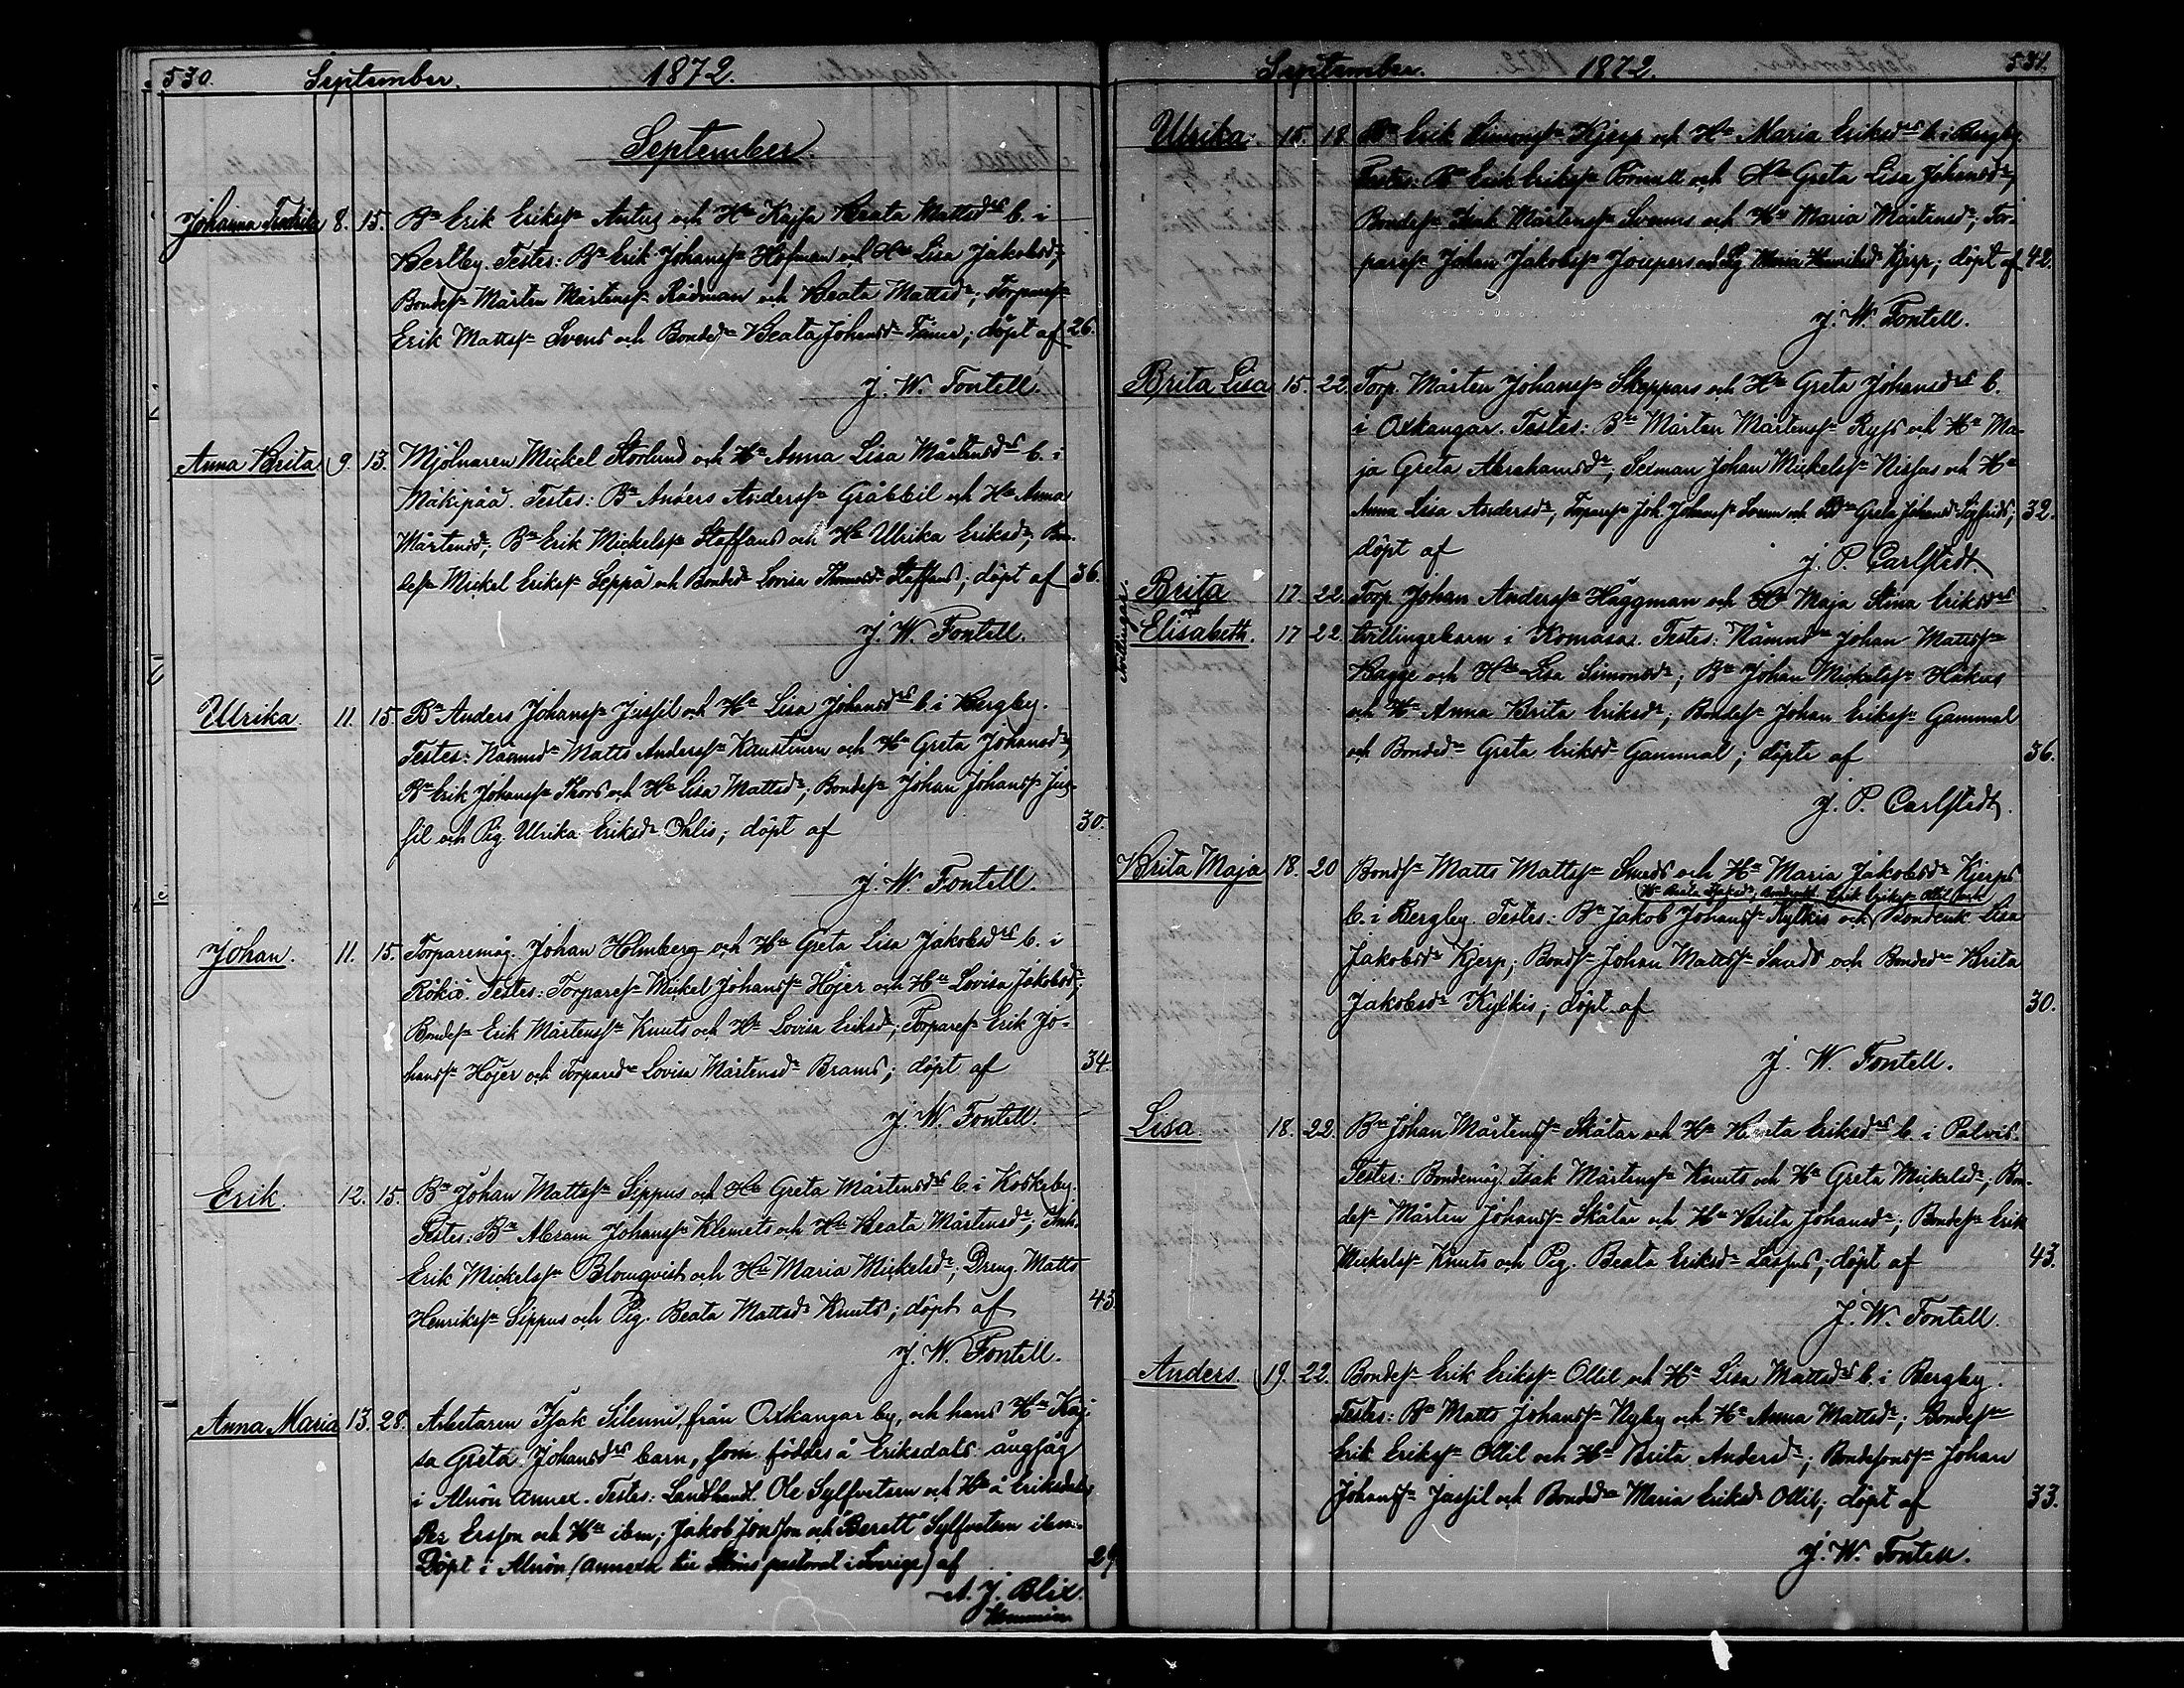 530. September. 1872.
September.
Johanna Fredrika 8. 15. Bn Erik Erikss:n Antus och Hu Kajsa Beata Mattsdrs b. i
Bertby. Testes: Bn Erik Johanss:n Hofman och Hu Lisa Jakobsdr,
Bondes:n Mårten Mårtenss:n Rådman och Beata Mattsdr; Torpares:n
Erik Mattss:n Svens och Bonded:r Beata Johansdr; döpt af 26.
J. W. Fontell.
Anna Brita 9. 13. Mjölnaren Mickel Storlund och Hu Anna Lisa Mårtensdrs b. i
Mäkipää. Testes: Bn Anders Anderss:n Gråbbil och Hu Anna
Mårtensdr; Bn Erik Mickelss:n Staffans och Hu Ulrika Eriksdr; Bon-
des:n Mickel Erikss:n Seppä och Bonded:r Lovisa Thomasdr Staffans; döpt af 36.
J. W. Fontell.
Ulrika. 11. 15. Bn Anders Johanss:n Jussil och Hu Lisa Johansdrs b. i Bergby.
Testes: Nämnd:n Matts Anderss:n Kaustinen och Hu Greta Johansdr,
Bn Erik Johanss:n Thors och Hu Lisa Mattsdr; Bondes:n Johan Johanss:n Jus-
sil och Pig. Ulrika Eriksdr Ohlis; döpt af 30.
J. W. Fontell.
Johan. 11. 15. Torparemåg. Johan Holmberg och Hu Greta Lisa Jakobsdrs b. i
Rökiö. Testes: Torpares:n Mickel Johanss:n Höjer och Hu Lovisa Jakobsdr;
Bondes:n Erik Mårtenss:n Knuts och Hu Lovisa Eriksdr; Torpares:n Erik Jo-
hanss:n Höjer och Torpared:r Lovisa Mårtensdr Brams; döpt af 34.
J. W. Fontell.
Erik. 12. 15. Bn Johan Mattss:n Sippus och Hu Greta Mårtensdrs b. i Koskeby.
Testes: Bn Abram Johanss:n Klemets och Hu Beata Mårtensdr; Inh.
Erik Mickelss:n Blomqvist och Hu Maria Mickelsdr; Dreng Matts
Henrikss:n Sippus och Pig. Beata Mattsdr Knuts; döpt af 43.
J. W. Fontell.
Anna Maria 13. 28. Arbetaren Isak Silenius, från Oxkangar by, och hans Hu Kaj-
sa Greta Johansdrs barn, som föddes å Eriksdals ångsåg
i Alnön annex. Testes: Landthandl. Ole Sylfvetsen och Hu å Eriksdal,
Per Ersson och Hu ibm; Jakob Jonsson och "Berett" Sylfvetsen ibm.
Döpt i Alnön (annexa till Sköns pastorat i Sverige) af 29
A. J. Blix.
Komminis
September. 1872. 531.
Ulrika. 15. 18. Bn Erik Simonss:n Kjerp och Hu Maria Eriksdrs b. i Bergby.
Testes: Bn Erik Erikss:n och Hu Greta Lisa Johansdr;
Bondes:n Isak Mårtenss:n Svenns och Hu Maria Mårtensdr; Tor-
pares:n Johan Jakobss:n Joupers och Pig Maria Henriksdr Kjerp; döpt af 42.
J. W. Fontell.
Brita Lisa 15. 22. Torp. Mårten Johanss:n Skeppars och Hu Greta Johansdrs b.
i Oxkangar. Testes: Bn Mårten Mårtenss:n Ryss och Hu Ma-
ja Greta Abrahamsdr; Sexman Johan Mickelss:n Nissas och Hu
Anna Lisa Andersdr; Torpares:n Joh. Johanss:n och Bd:r Greta Johansdr Sigfrids; 32.
döpt af J. P. Carlstedt.
tvillingar.
Brita 17. 22. Torp. Johan Anderss:n Häggman och Hu Maja Stina Eriksdrs
Elisabeth. 17 22. tvillingebarn i Komåsar. Testes: Nämnd:n Johan Mattss:n
Bagge och Hu Lisa Simonsdr; Bn Johan Mickelss:n Håkus
och Hu Anna Brita Eriksdr; Bondes:n Johan Erikss:n Gammal
och Bonded:r Greta Eriksdr Gammal; döpte af 36.
J. P. Carlstedt.
Brita Maja 18. 20 Bonds:n Matts Mattss:n Smeds och Hu Maria Jakobsdr Kjerps
(Hu Beata Isaksdr, Erik Erikss:n Ollil och)
b. i Bergby. Testes: Bn Jakob Johanss:n Kylkis och Bondenk. Lisa
Jakobsdr Kjerp; Bonds:n Johan Mattss:n Smeds och Bonded:r Brita
Jakobsdr Kylkis; döpt af 30.
J. W. Fontell.
Lisa 18. 22. Bn Johan Mårtenss:n Skåtar och Hu Beata Eriksdrs b. i Palvis.
Testes: Bondemåg. Isak Mårtenss:n Knuts och Hu Greta Mickelsdr; Bon-
des:n Mårten Johanss:n Skåtar och Hu Brita Johansdr; Bondes:n Erik
Mickelss:n Knuts och Pig. Beata Eriksdr Laspus; döpt af 43.
J. W. Fontell.
Anders. 19. 22. Bondes:n Erik Erikss:n Ollil och Hu Lisa Mattsdrs b. i Bergby.
Testes: Bn Matts Johanss:n Nyby och Hu Anna Mattsdr; Bondes:n
Erik Erikss:n Ollil och Hu Brita Andersdr; Bondesonss:n Johan
Johanss:n Jussil och Bonded:r Maria Eriksdr Ollil; döpt af 33.
J. W. Fontell.